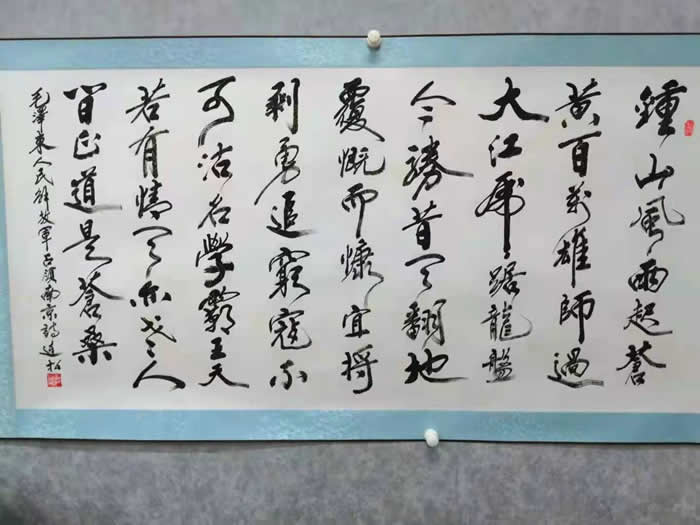 鍾山風雨起蒼
黃百萬雄師過
大江虎踞龍盤
今勝昔天翻地
覆慨而慷宜將
剩勇追窮寇不
可沽名學霸王天
若有情天亦老人
間正道是蒼桑
毛澤東人民解放軍占領南京詩